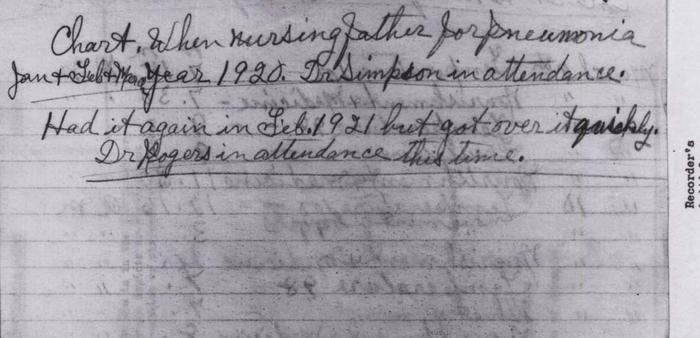 Chart. When nursing father for pneumonia
Jan + Feb + Mar, Year 1920. Dr Simpson in attendance.
Had it again in Feb. 1921 but got over it quickly.
Dr Rogers in attendance this time.
Recorder's